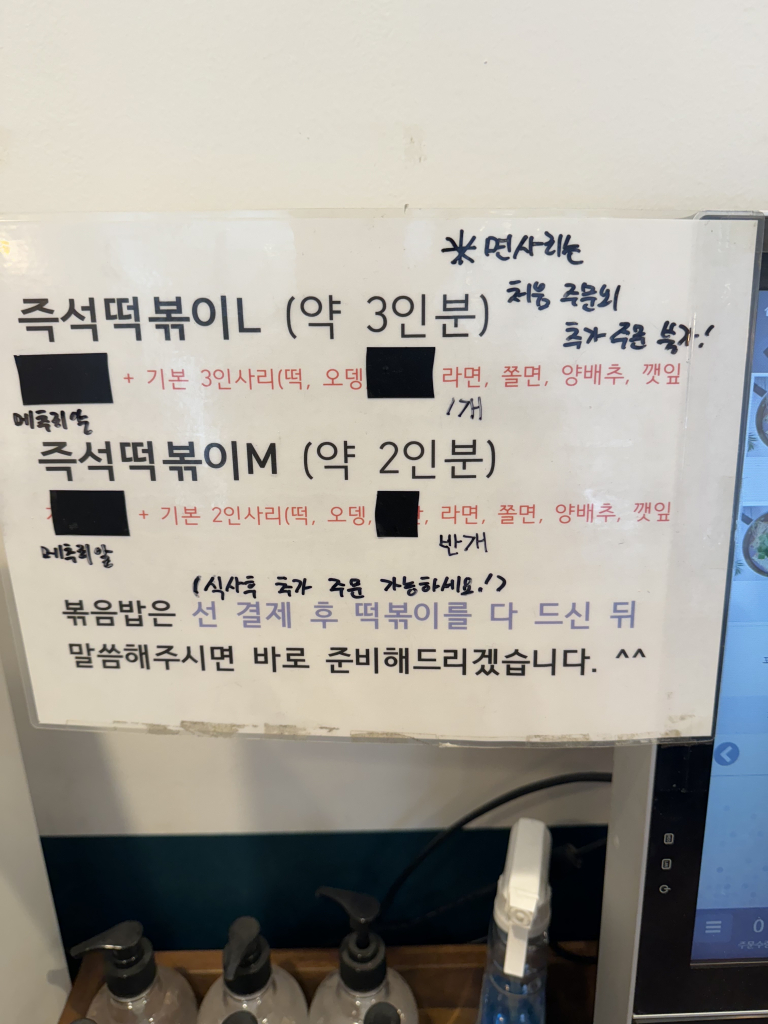 ※ 면사리는
처음 주문뇌
추가 주문 북가!
즉석떡볶이L (약 3인분)
+ 기본 3인사리(떡, 오뎅 라면, 쫄면, 양배추, 깻잎
메추리알
1개
즉석떡볶이M (약 2인분)
+ 기본 2인사리(떡, 오뎅, 라면, 쫄면, 양배추, 깻잎
메추리알
반개
(식사후 추가 주문 가능하세요!)
볶음밥은 선 결제 후 떡볶이를 다 드신 뒤
말씀해주시면 바로 준비해드리겠습니다. ^^
0